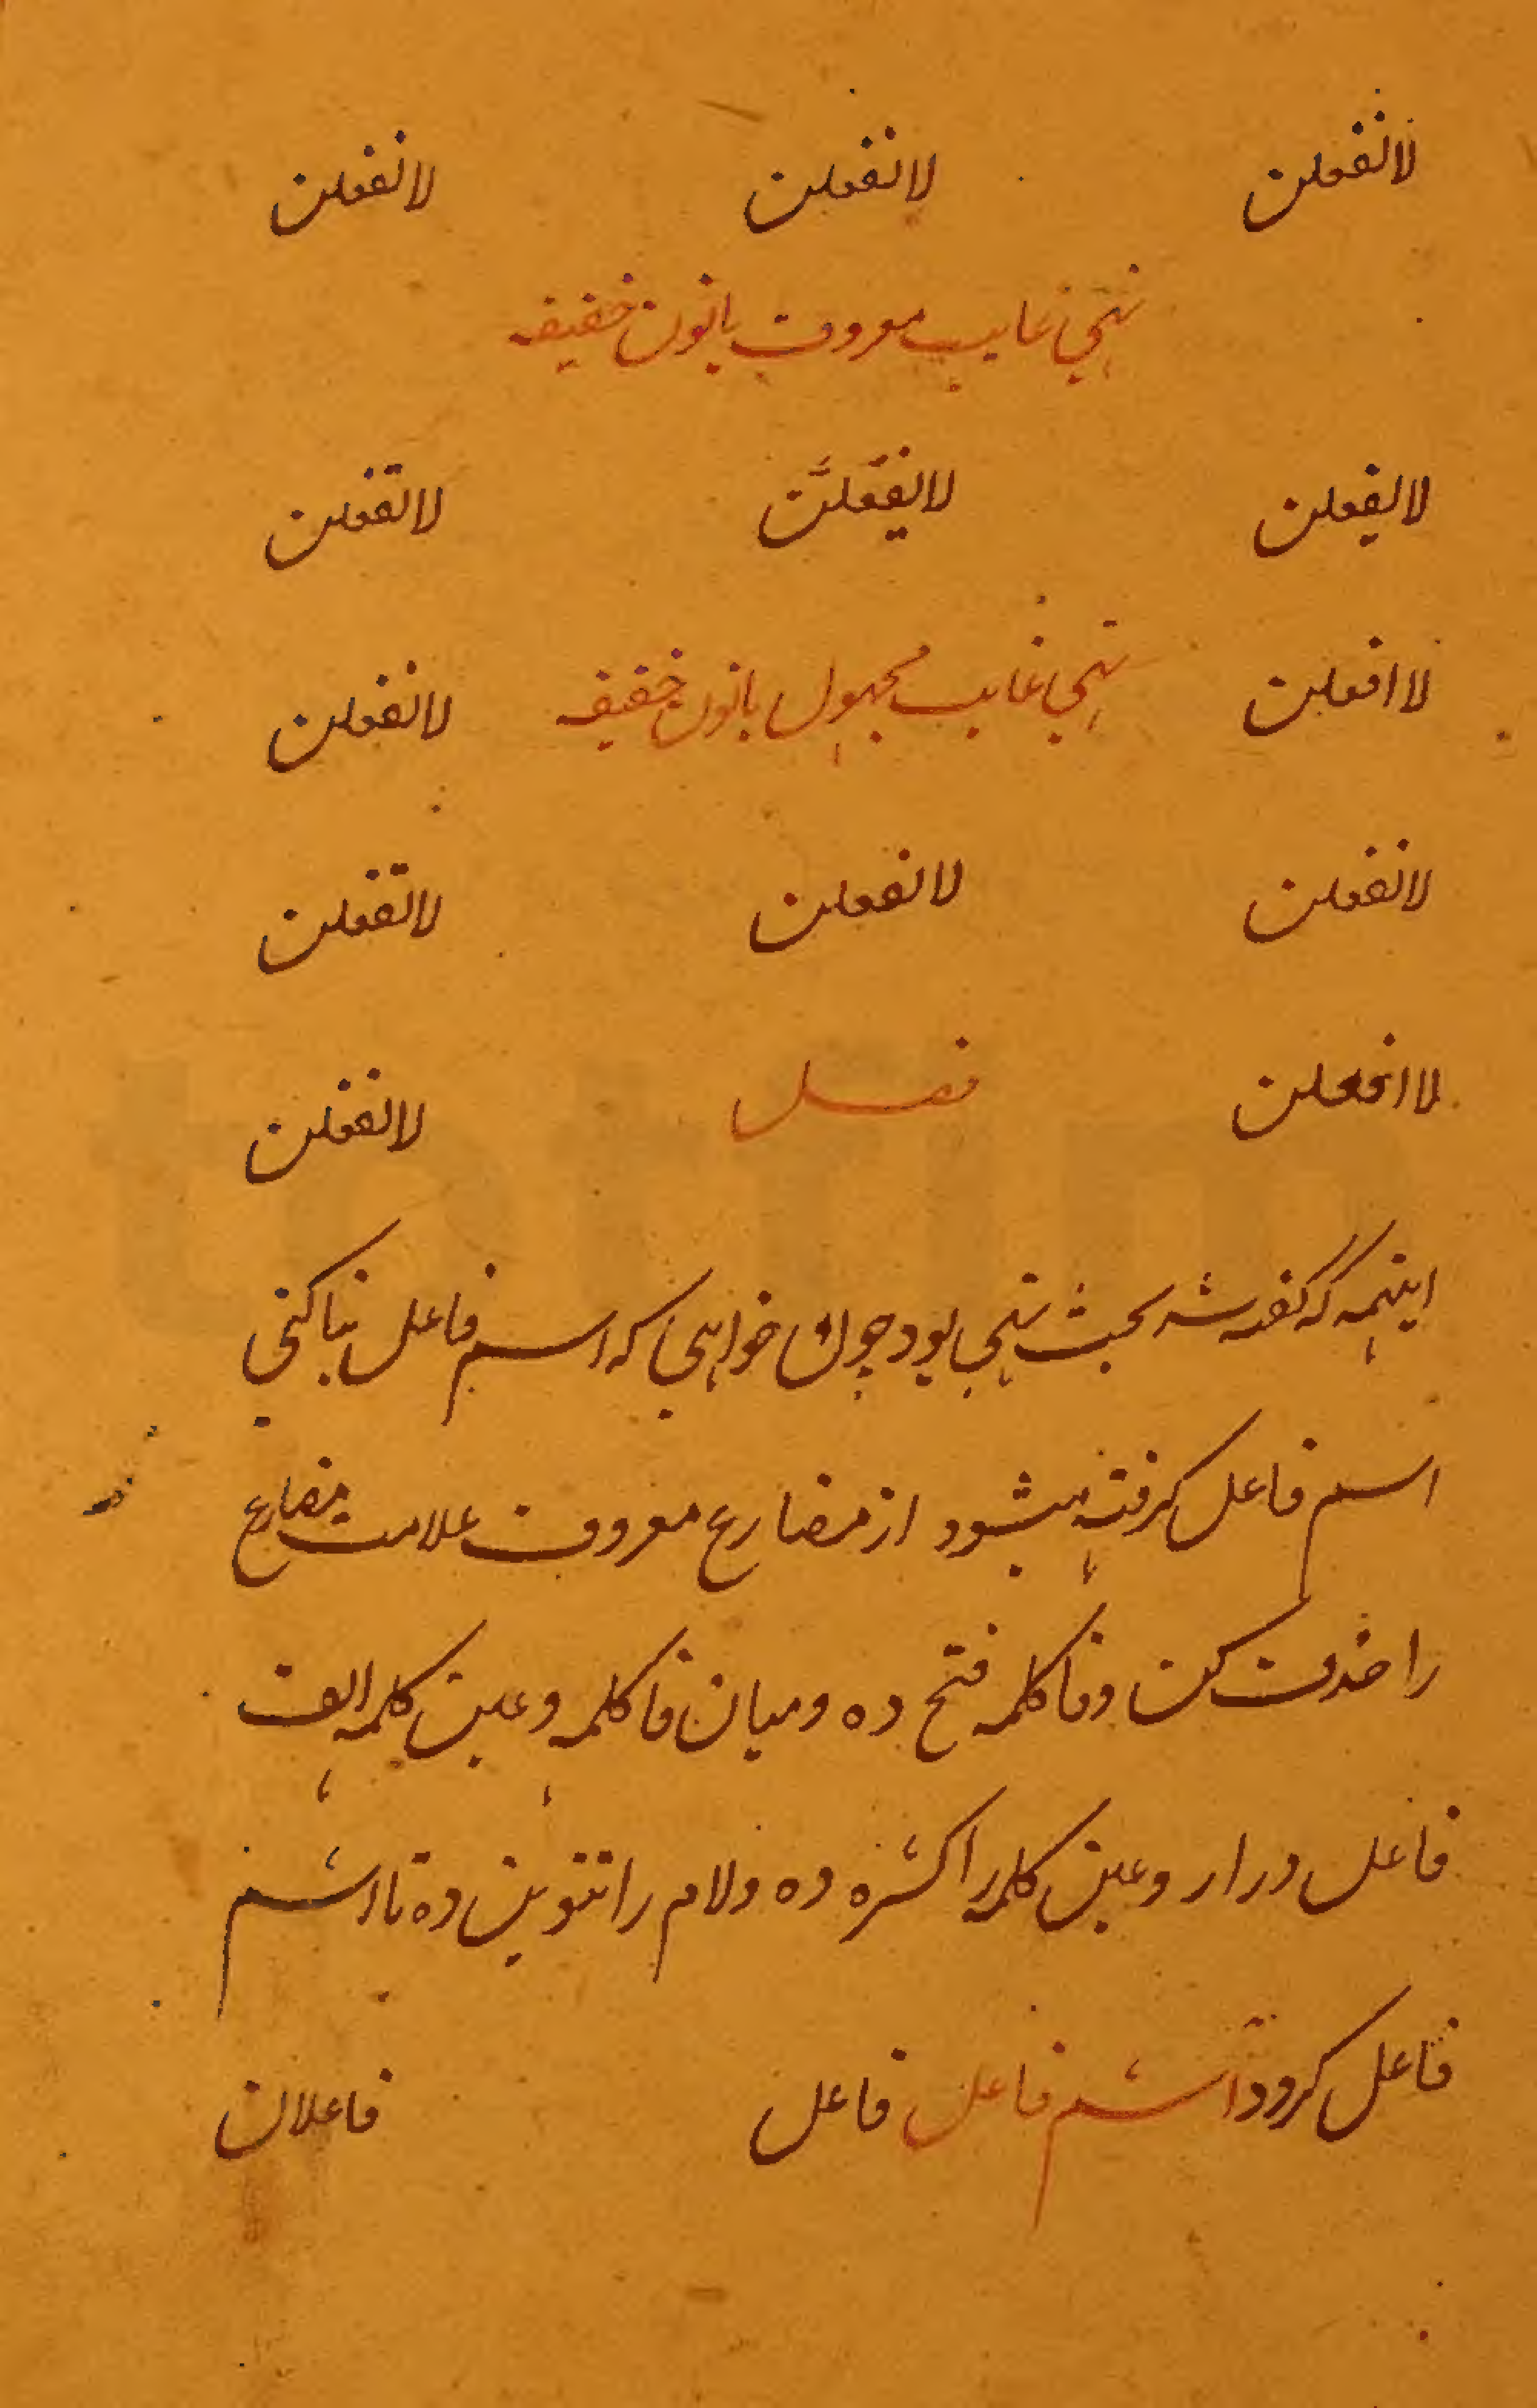 لاتفعلن لاتفعلن لاتفعلن
نهی غایب معروف بانون خفیفه
لایفعلن لایفعلن لاتفعلن
لاافعلن نهی غایب مجهول بانون خفیفه لانفعلن
لایفعلن لایفعلن لاتفعلن
لاافعلن فصل لانفعلن
اینهمه که گفته شد بحث نهی بود چون خواهی که اسم فاعل بنا کنی
اسم فاعل گرفته میشود از مضارع معروف علامت مضارع
را حذف کن و فا کلمه فتح ده و میان فا کلمه و عین کلمه الف
فاعل درار و عین کلمه را کسره ده و لام را تنوین ده تا اسم
فاعل گردد اسم فاعل فاعل فاعلان